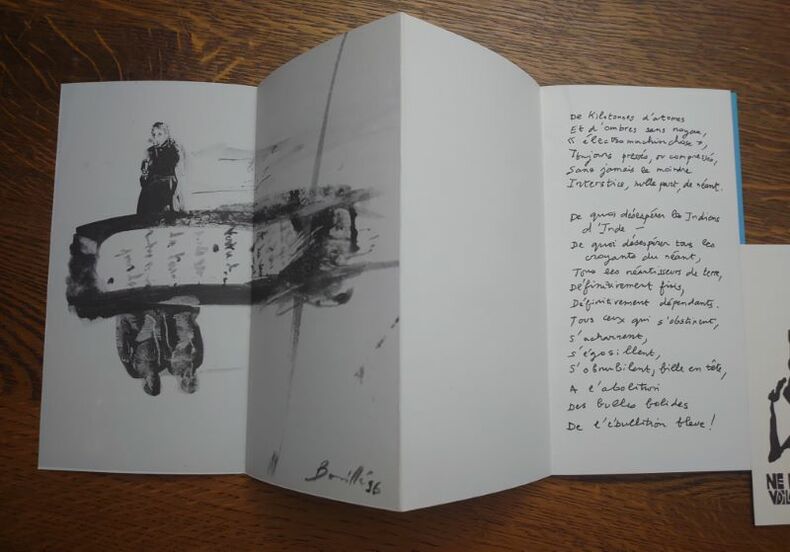 96
De Kilotonnes d'atomes
Et d'ombres sans noyau,
d'électromachinchoses,
Toujours pressés, ou compressés,
Sans jamais le moindre
Interstice, nulle part, de néant.
De quoi désespérer les Indiens
d'Inde –
De quoi désespérer tous les
croyants du néant,
Tous les néantisseurs de terre,
Définitivement finis,
Définitivement dépendants.
Tous ceux qui s'obstinent,
S'acharnent,
S'égosillent,
S'obnubilent, bille en tête,
A l'abolition
Des bulles bolides
De l'ébullition bleue !
NE